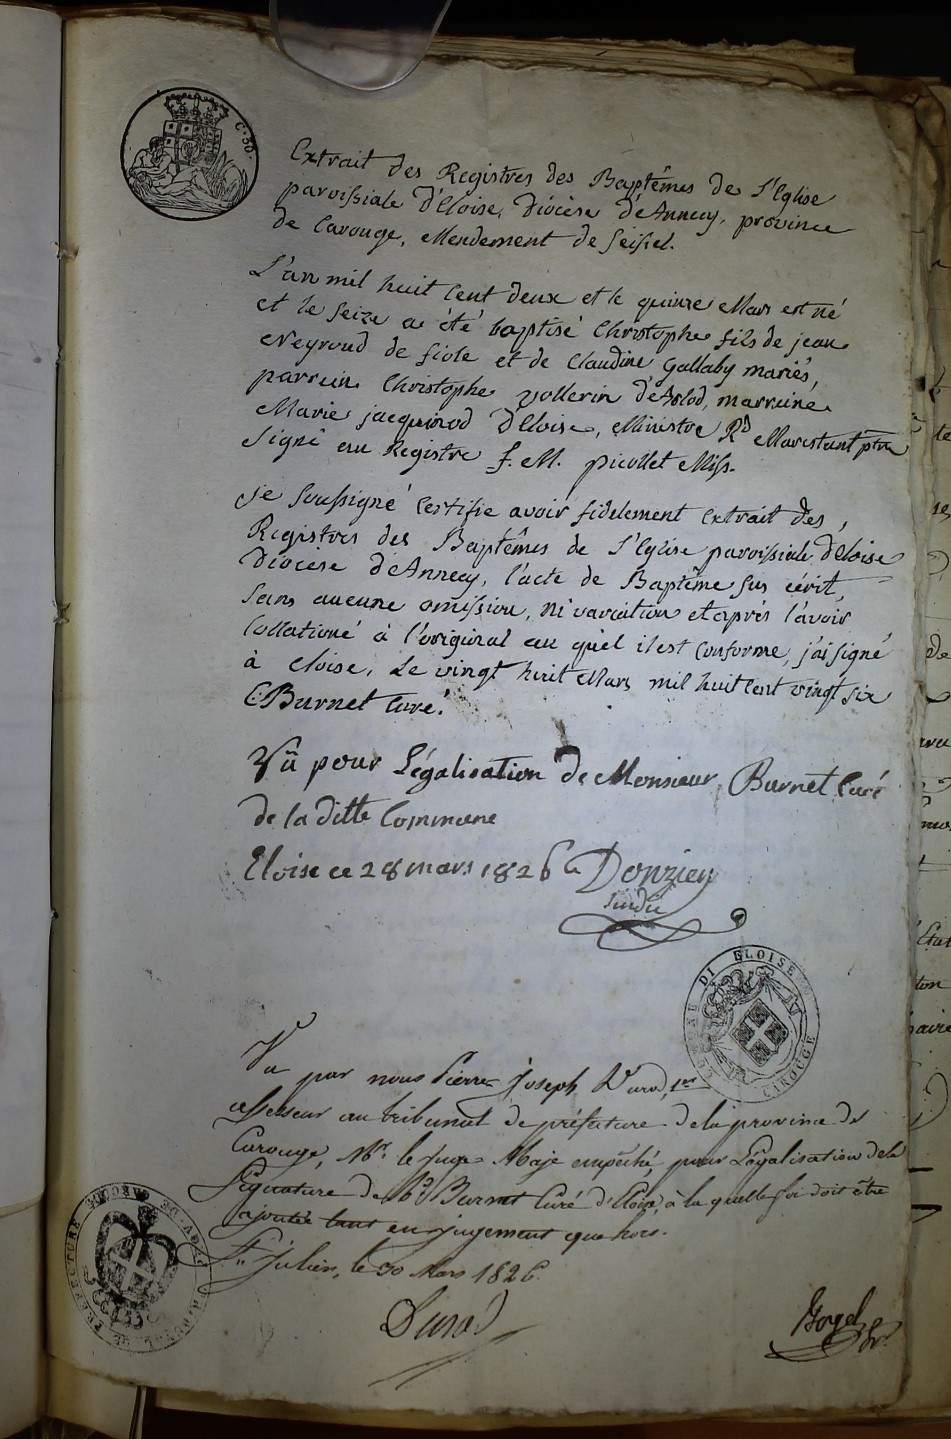 C. 30.
Extrait des Registres des Baptêmes de L'Eglise
paroissiale d'Eloise, Diocèse d'Annecy, province
de Carouge, Mendement de Seissel.
L'an mil huit cent deux et le quinze Mars est né
et le seize a été baptisé Christophe fils de jean
Neyroud de fiole et de Claudine Gallaby mariés,
parrein Christophe vollerin d'Arlod, marreine
Marie jacquinod d'Eloise, Ministre Rd Marestant ptre
Signé au Registre f. M. picollet Miss.
je Soussigné Certifie avoir fidelement Extrait des
Registres des Baptêmes de L'Eglise paroissiale d'Eloise
Diocèse d'Annecy, l'acte de Baptême sus écrit,
Sans aucune omission, ni variation et aprés l'avoir
Collationé à l'original au quel il est Conforme, j'ai signé
à Eloise, Le vingt huit Mars mil huit cent vingt six
Burnet Curé.
Vû pour Légalisation de Monsieur Burnet Curé
de la ditte Commune
Eloise ce 28 mars 1826 Donzier
Sindic
COMUNE DI ELOISE
CAROUGE
Vu par nous Pierre Joseph Durod, 1er
assesseur au tribunal de préfecture de la province de
Carouge, Mr. le juge Maje empêché, pour Légalisation de la
Signature de Rd Burnet Curé d'Eloise, à la quelle foi doit être
ajoutée tant en jugement que hors.
St julien, le 30 Mars 1826.
TRIBUNAL DE PREFECTURE DE CAROUGE
Durod